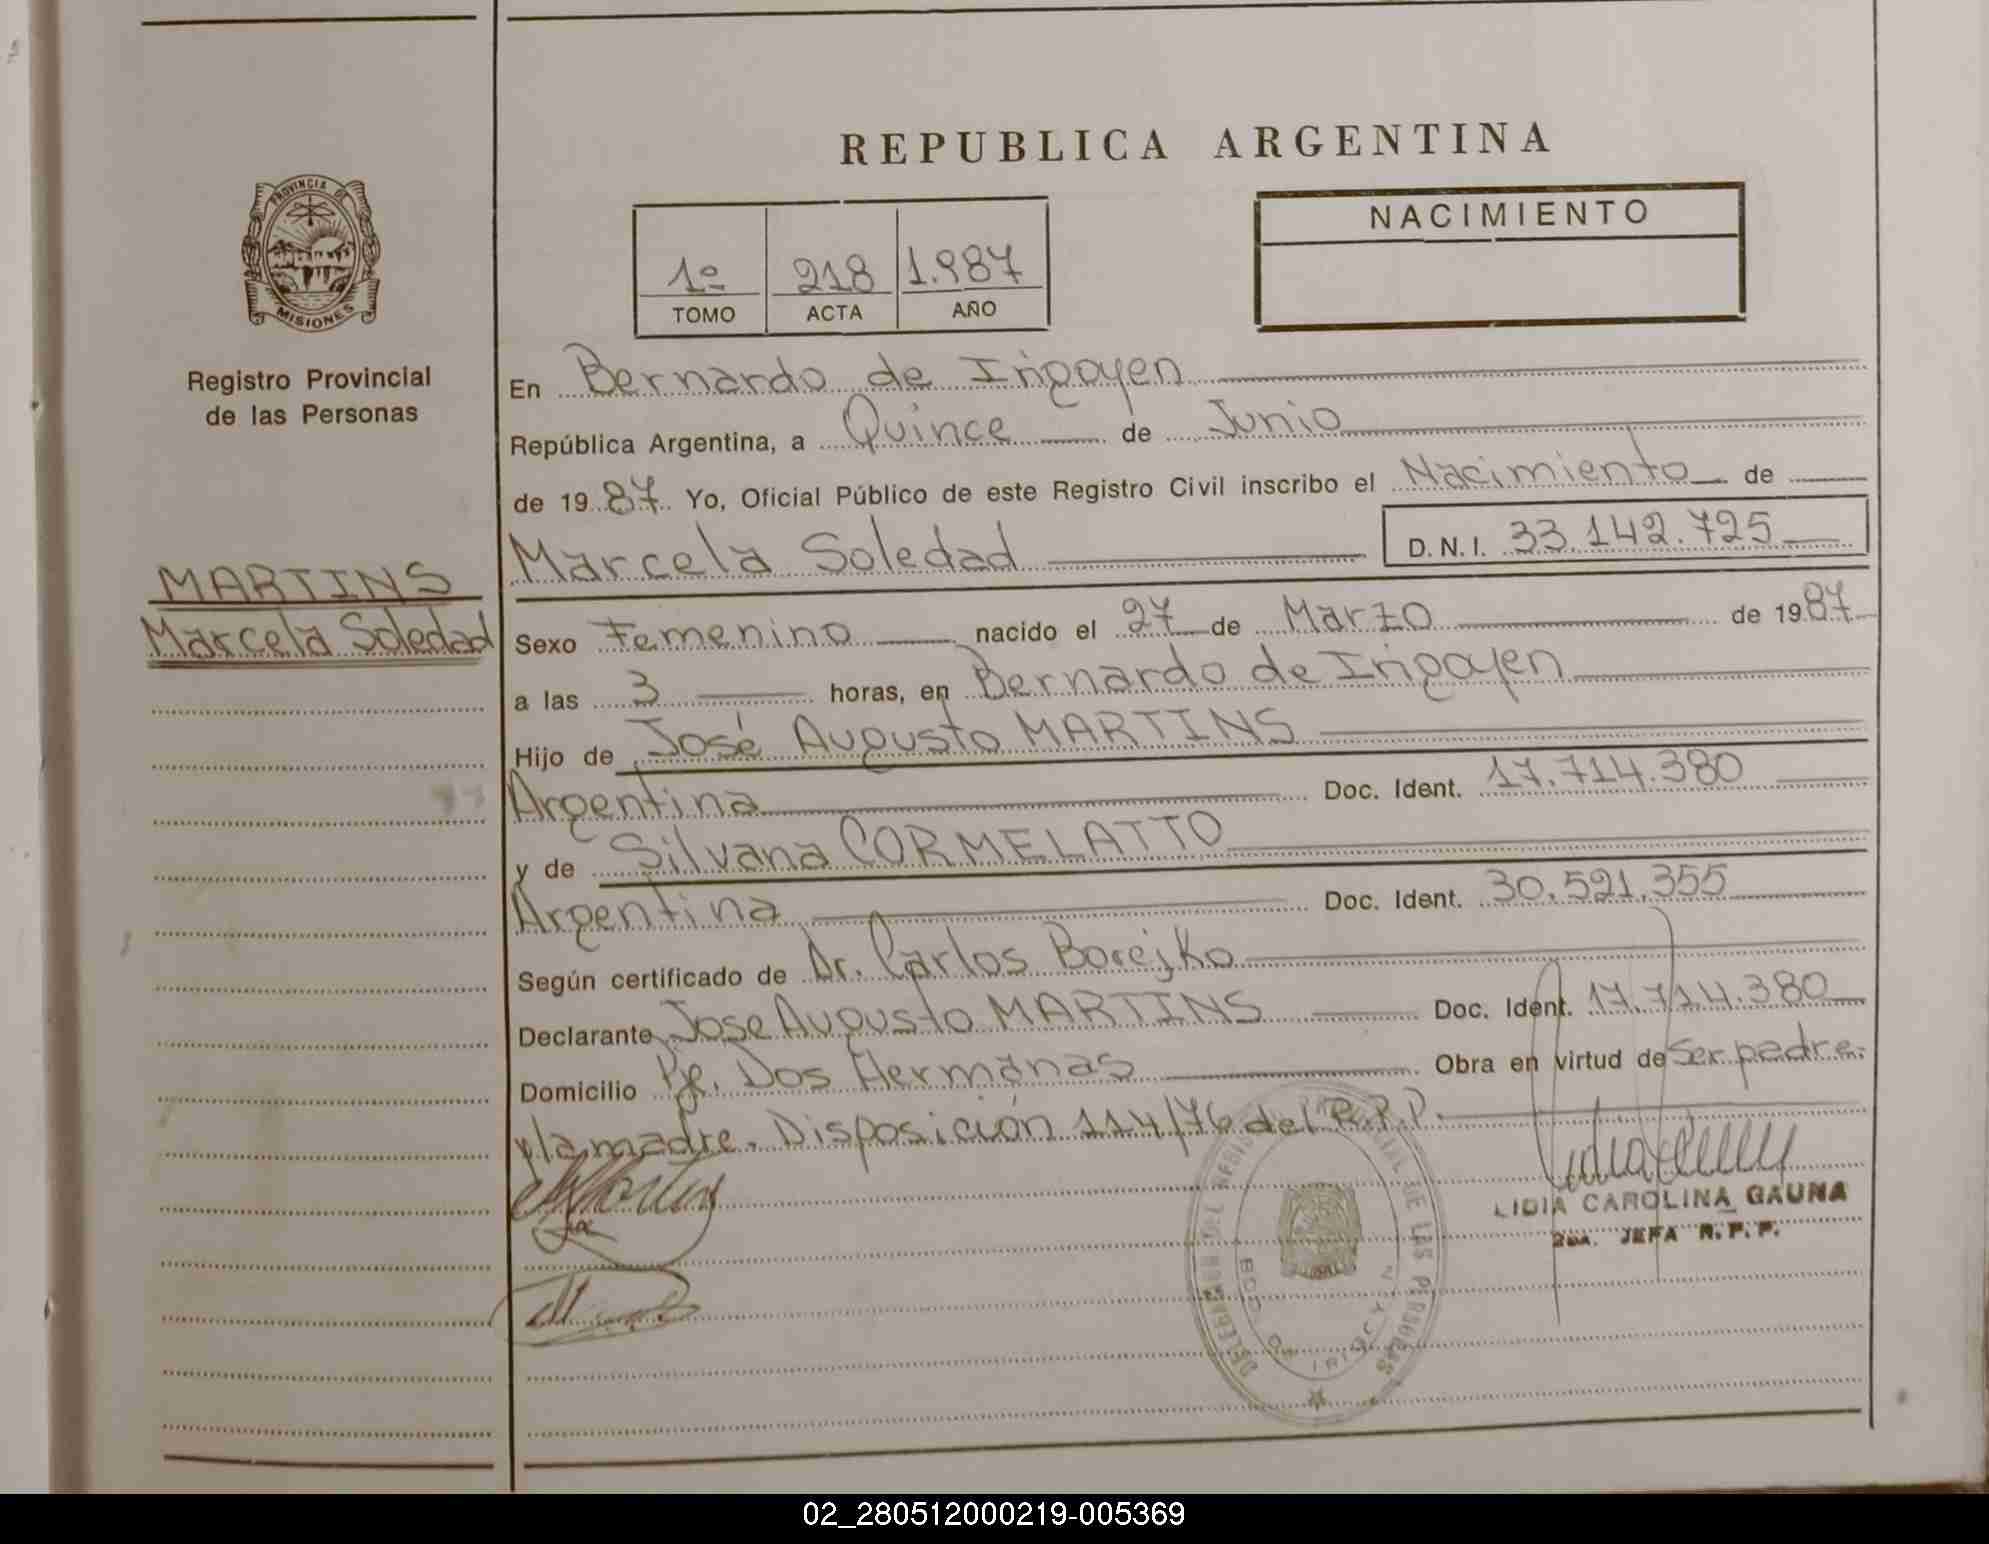 REPUBLICA ARGENTINA
PROVINCIA DE
MISIONES
Registro Provincial
de las Personas
MARTINS
Marcela Soledad
1º 218 1.987
TOMO ACTA AÑO
NACIMIENTO
En Bernardo de Irigoyen
República Argentina, a Quince de Junio
de 19 87 Yo, Oficial Público de este Registro Civil inscribo el Nacimiento de
Marcela Soledad D.N.I. 33.142.725
Sexo Femenino nacido el 27 de Marzo de 19 87
a las 3 horas, en Bernardo de Irigoyen
Hijo de José Augusto MARTINS
Argentina Doc. Ident. 17.714.380
y de Silvana CORMELATTO
Argentina Doc. Ident. 30.521.355
Según certificado de Dr. Carlos Borejko
Declarante Jose Augusto MARTINS Doc. Ident. 17.714.380
Domicilio Pje. Dos Hermanas Obra en virtud de Ser padre
y la madre. Disposición 114/76 del R.P.P.
LIDIA CAROLINA GAUNA
2DA. JEFA R.P.P.
DELEGACION DEL REGISTRO PROVINCIAL DE LAS PERSONAS
BDO DE IRIGOYEN
02_280512000219-005369